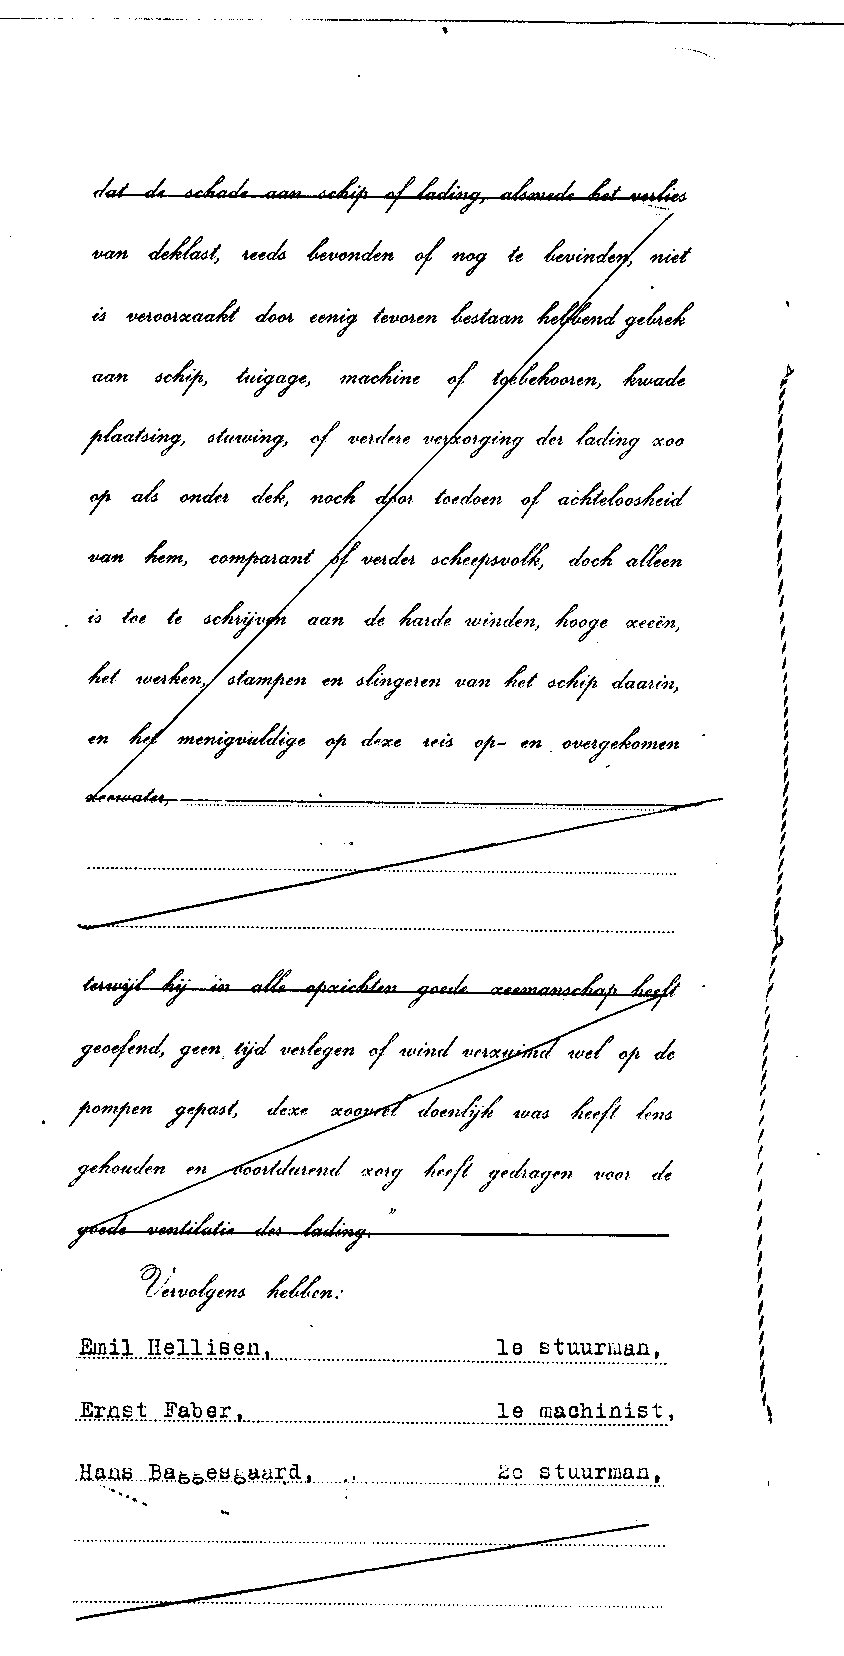 dat de schade aan schip of lading, alsmede het verlies
van deklast, reeds bevonden of nog te bevinden, niet
is veroorzaakt door eenig tevoren bestaan hebbend gebrek
aan schip, tuigage, machine of toebehooren, kwade
plaatsing, stuwing, of verdere verzorging der lading zoo
op als onder dek, noch door toedoen of achteloosheid
van hem, comparant of verder scheepsvolk, doch alleen
is toe te schrijven aan de harde winden, hooge zeeën,
het werken, stampen en slingeren van het schip daarin,
en het menigvuldige op deze reis op- en overgekomen
zeewater,
terwijl hij in alle opzichten goede zeemanschap heeft
geoefend, geen tijd verlegen of wind verzuimd wel op de
pompen gepast, deze zooveel doenlijk was heeft lens
gehouden en voortdurend zorg heeft gedragen voor de
goede ventilatie der lading."
Vervolgens hebben:
Emil Hellisen, 1e stuurman,
Ernst Faber, 1e machinist,
Hans Baggesgaard, 2e stuurman,